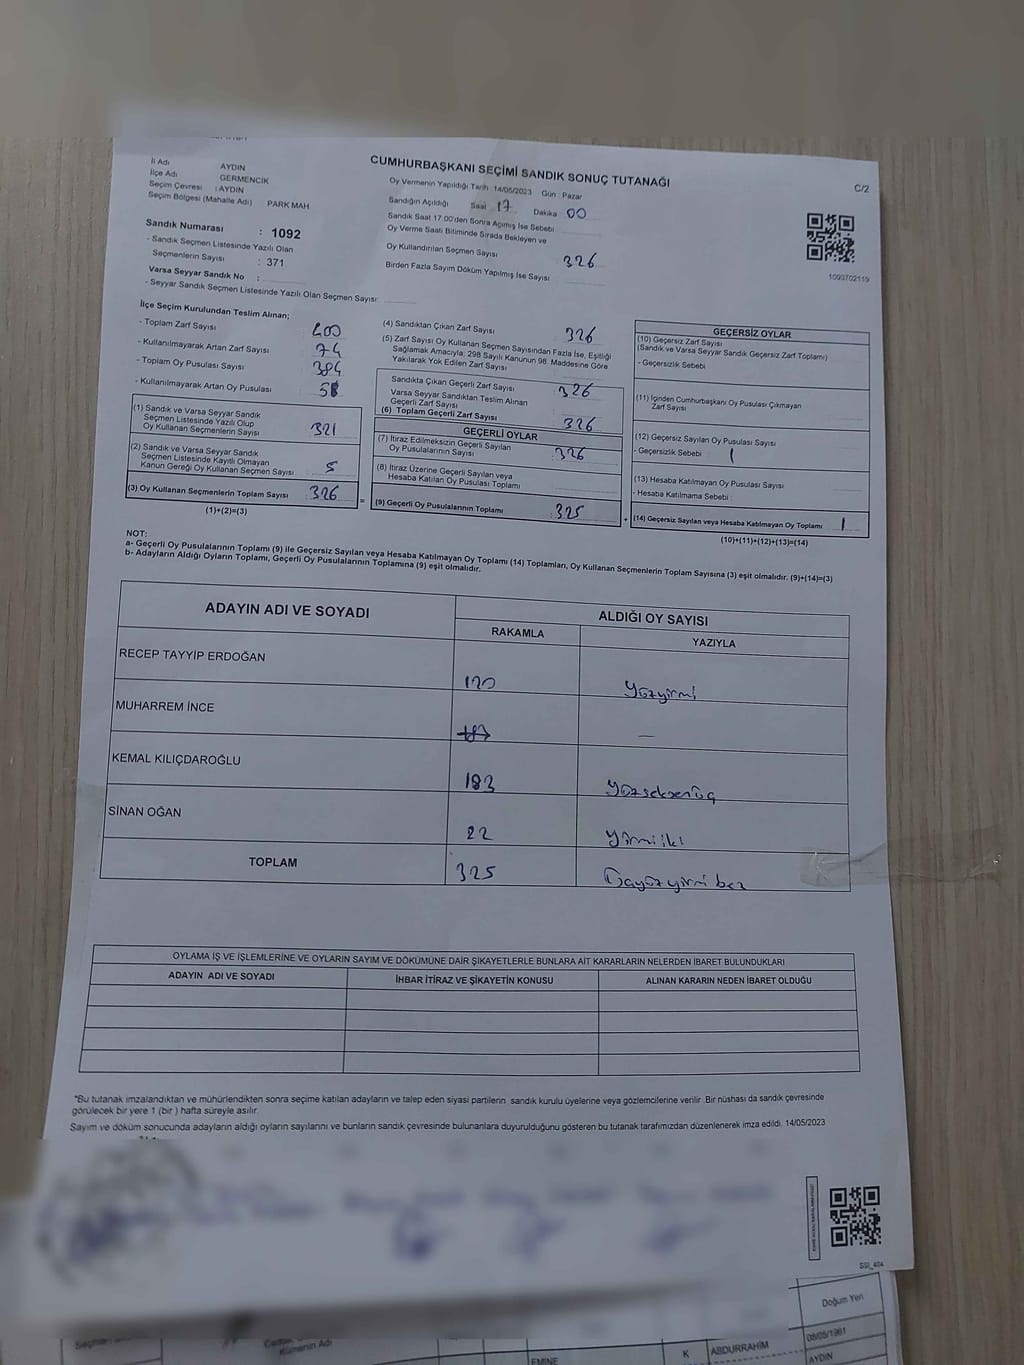 CUMHURBAŞKANI SEÇİMİ SANDIK SONUÇ TUTANAĞI
C/2
İli Adı : AYDIN
İlçe Adı : GERMENCİK
Seçim Çevresi : AYDIN
Seçim Bölgesi (Mahalle Adı) PARK MAH
Oy Vermenin Yapıldığı Tarih :14/05/2023 Gün : Pazar
Sandığın Açıldığı Saat 17 Dakika 00
Sandık Saat 17:00'den Sonra Açılmış İse Sebebi
Oy Verme Saati Bitiminde Sırada Bekleyen ve
Oy Kullandırılan Seçmen Sayısı 326
Birden Fazla Sayım Döküm Yapılmış İse Sayısı
1093702119
Sandık Numarası : 1092
- Sandık Seçmen Listesinde Yazılı Olan
Seçmenlerin Sayısı : 371
Varsa Seyyar Sandık No :
- Seyyar Sandık Seçmen Listesinde Yazılı Olan Seçmen Sayısı:
İlçe Seçim Kurulundan Teslim Alınan;
- Toplam Zarf Sayısı 400
- Kullanılmayarak Artan Zarf Sayısı 74
- Toplam Oy Pusulası Sayısı 384
- Kullanılmayarak Artan Oy Pusulası
(1) Sandık ve Varsa Seyyar Sandık
Seçmen Listesinde Yazılı Olup
Oy Kullanan Seçmenlerin Sayısı 321
(2) Sandık ve Varsa Seyyar Sandık
Seçmen Listesinde Kayıtlı Olmayan
Kanun Gereği Oy Kullanan Seçmen Sayısı 5
(3) Oy Kullanan Seçmenlerin Toplam Sayısı 326
(1)+(2)=(3)
=
(4) Sandıktan Çıkan Zarf Sayısı 326
(5) Zarf Sayısı Oy Kullanan Seçmen Sayısından Fazla İse, Eşitliği
Sağlamak Amacıyla; 298 Sayılı Kanunun 98. Maddesine Göre
Yakılarak Yok Edilen Zarf Sayısı
Sandıkta Çıkan Geçerli Zarf Sayısı 326
Varsa Seyyar Sandıktan Teslim Alınan
Geçerli Zarf Sayısı
(6) Toplam Geçerli Zarf Sayısı 326
GEÇERLİ OYLAR
(7) İtiraz Edilmeksizin Geçerli Sayılan
Oy Pusulalarının Sayısı : 326
(8) İtiraz Üzerine Geçerli Sayılan veya
Hesaba Katılan Oy Pusulası Toplamı
(9) Geçerli Oy Pusulalarının Toplamı : 325
+
GEÇERSİZ OYLAR
(10) Geçersiz Zarf Sayısı
(Sandık ve Varsa Seyyar Sandık Geçersiz Zarf Toplamı)
- Geçersizlik Sebebi
(11) İçinden Cumhurbaşkanı Oy Pusulası Çıkmayan
Zarf Sayısı
(12) Geçersiz Sayılan Oy Pusulası Sayısı
- Geçersizlik Sebebi 1
(13) Hesaba Katılmayan Oy Pusulası Sayısı
- Hesaba Katılmama Sebebi :
(14) Geçersiz Sayılan veya Hesaba Katılmayan Oy Toplamı 1
(10)+(11)+(12)+(13)=(14)
NOT:
a- Geçerli Oy Pusulalarının Toplamı (9) ile Geçersiz Sayılan veya Hesaba Katılmayan Oy Toplamı (14) Toplamları, Oy Kullanan Seçmenlerin Toplam Sayısına (3) eşit olmalıdır. (9)+(14)=(3)
b- Adayların Aldığı Oyların Toplamı, Geçerli Oy Pusulalarının Toplamına (9) eşit olmalıdır.
ADAYIN ADI VE SOYADI ALDIĞI OY SAYISI
RAKAMLA YAZIYLA
RECEP TAYYİP ERDOĞAN 120 Yüzyirmi
MUHARREM İNCE —
KEMAL KILIÇDAROĞLU 183 Yüzseksenüç
SİNAN OĞAN 22 Yirmiiki
TOPLAM 325 Üçyüzyirmi beş
OYLAMA İŞ VE İŞLEMLERİNE VE OYLARIN SAYIM VE DÖKÜMÜNE DAİR ŞİKAYETLERLE BUNLARA AİT KARARLARIN NELERDEN İBARET BULUNDUKLARI
ADAYIN ADI VE SOYADI İHBAR İTİRAZ VE ŞİKAYETİN KONUSU ALINAN KARARIN NEDEN İBARET OLDUĞU
"Bu tutanak imzalandıktan ve mühürlendikten sonra seçime katılan adayların ve talep eden siyasi partilerin sandık kurulu üyelerine veya gözlemcilerine verilir. Bir nüshası da sandık çevresinde
görülecek bir yere 1 (bir) hafta süreyle asılır.
Sayım ve döküm sonucunda adayların aldığı oyların sayılarını ve bunların sandık çevresinde bulunanlara duyurulduğunu gösteren bu tutanak tarafımızdan düzenlenerek imza edildi. 14/05/2023
SSI_404
Doğum Yeri
EMİNE K ABDURRAHİM 08/05/1981
AYDIN